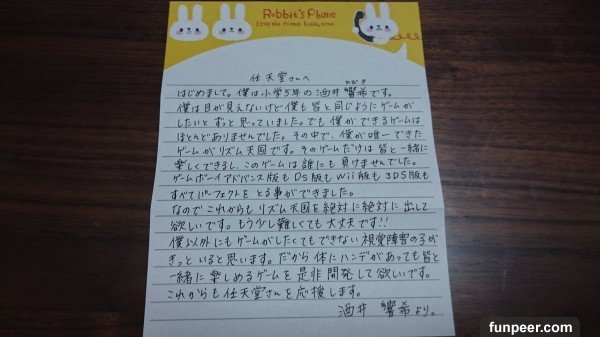 Rabbit's Phone
任天堂さんへ
はじめまして。僕は小学5年の酒井響希です。
ひびき
僕は目が見えないけど僕も皆と同じようにゲームが
したいとずっと思っていました。でも僕ができるゲームは
ほとんどありませんでした。その中で、僕が唯一できた
ゲームがリズム天国です。そのゲームだけは皆と一緒に
楽しくできるし、このゲームは誰にも負けませんでした。
ゲームボーイアドバンス版もDS版もWii版も3DS版も
すべてパーフェクトをとる事ができました。
なのでこれからもリズム天国を絶対に絶対に出して
欲しいです。もう少し難しくても大丈夫です!!
僕以外にもゲームがしたくてもできない視覚障害の子が
きっといると思います。だから体にハンデがあっても皆と
一緒に楽しめるゲームを是非開発して欲しいです。
これからも任天堂さんを応援します。
酒井響希より。
funpeer.com